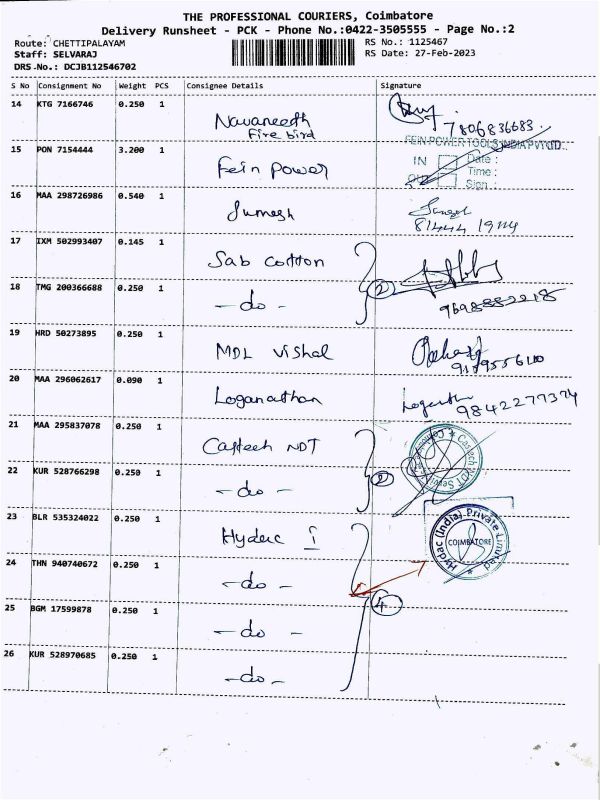 THE PROFESSIONAL COURIERS, Coimbatore
Delivery Runsheet - PCK - Phone No.:0422-3505555 - Page No.:2
Route: CHETTIPALAYAM RS No.: 1125467
Staff: SELVARAJ RS Date: 27-Feb-2023
DRS-No.: DCJB112546702
S No Consignment No Weight PCS Consignee Details Signature
14 KTG 7166746 0.250 1
Navaneeth
Fire bird
7806836683
15 PON 7154444 3.200 1
Fein power
FEIN POWER TOOLS INDIA PVT LTD.
IN Date :
Time :
OUT Sign :
16 MAA 298726986 0.540 1
Jumesh
17 IXM 502993407 0.145 1
Sab cotton
18 TMG 200366688 0.250 1
- do -
2
19 HRD 50273895 0.250 1
MDL vishal
20 MAA 296062617 0.090 1
Loganathan
9842277374
21 MAA 295837078 0.250 1
Castech NDT
22 KUR 528766298 0.250 1
- do -
2
23 BLR 535324022 0.250 1
Hydac I
Hydac (India) Private Limited
COIMBATORE
24 THN 940740672 0.250 1
- do -
4
25 BGM 17599878 0.250 1
- do -
26 KUR 528970685 0.250 1
- do -